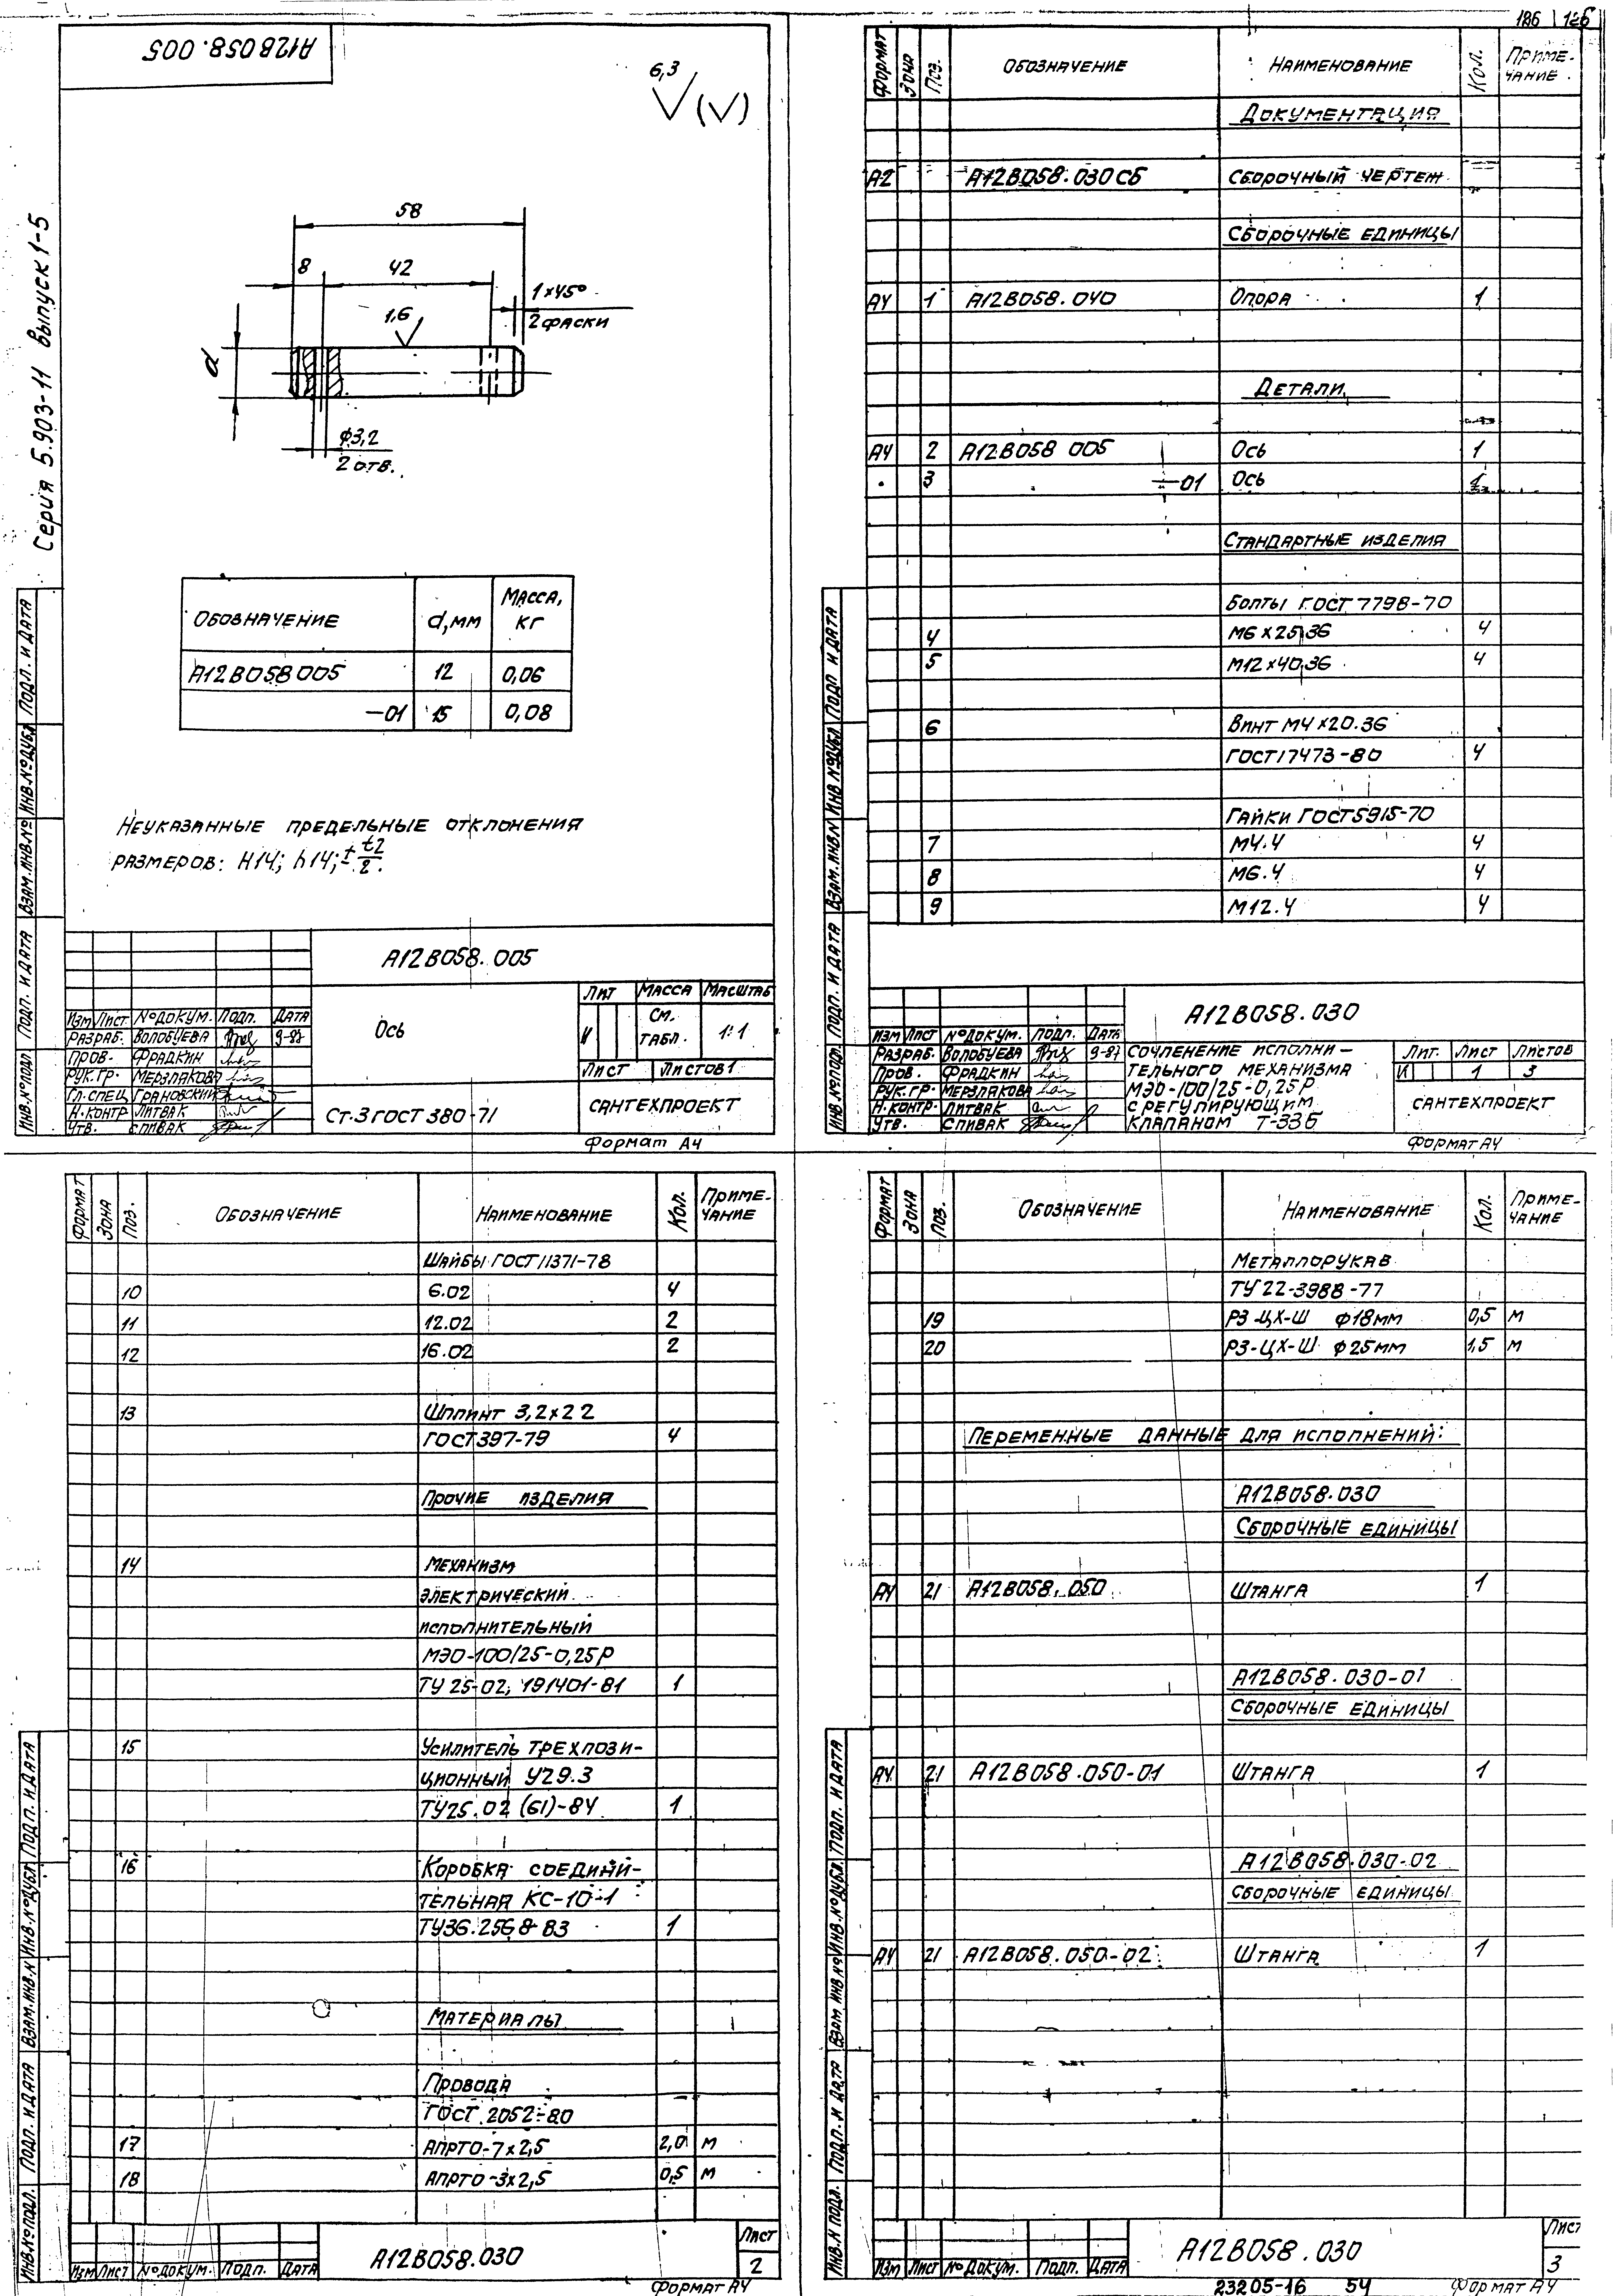 186 | 126
А12В058.005
6,3
(√)
Серия 5.903-11 Выпуск 1-5
58
8 42
1×45°
2 фаски
1,6
d
ф3,2
2 отв.
Обозначение d,мм Масса, кг
А12В058.005 12 0,06
—01 15 0,08
Неуказанные предельные отклонения
размеров: Н14; h14; ± t2/2.
А12В058.005
Ось
Лит Масса Масштаб
И См. табл. 1:1
Лист Листов 1
Изм Лист № докум. Подп. Дата
Разраб. Волобуева 9-87
Пров. Фрадкин
Рук.гр. Мерзлякова
Гл.спец Грановский
Н.контр Литвак
Утв. Спивак
Ст.3 ГОСТ 380-71
САНТЕХПРОЕКТ
Формат А4
Инв.№подл Подп. и дата Взам.инв.№ Инв.№дубл Подп. и дата
Формат Зона Поз. Обозначение Наименование Кол. Примечание
Документация
А2 А12В058.030СБ Сборочный чертеж
Сборочные единицы
А4 1 А12В058.040 Опора 1
Детали
А4 2 А12В058 005 Ось 1
3 —01 Ось 1
Стандартные изделия
Болты ГОСТ 7798-70
4 М6×25.36 4
5 М12×40.36 4
6 Винт М4×20.36
ГОСТ 17473-80 4
Гайки ГОСТ 5915-70
7 М4.4 4
8 М6.4 4
9 М12.4 4
А12В058.030
Изм Лист № докум. Подп. Дата
Разраб. Волобуева 9-87
Пров. Фрадкин
Рук.гр. Мерзлякова
Н.контр. Литвак
Утв. Спивак
Сочленение исполни-
тельного механизма
МЭО-100/25-0,25Р
с регулирующим
клапаном Т-33б
Лит. Лист Листов
И 1 3
САНТЕХПРОЕКТ
Формат А4
Инв.№подл. Подп. и дата Взам.инв.№ Инв.№дубл Подп и дата
Формат Зона Поз. Обозначение Наименование Кол. Примечание
Шайбы ГОСТ 11371-78
10 6.02 4
11 12.02 2
12 16.02 2
13 Шплинт 3,2×22
ГОСТ 397-79 4
Прочие изделия
14 Механизм
электрический
исполнительный
МЭО-100/25-0,25Р
ТУ 25-02, 191401-81 1
15 Усилитель трехпози-
ционный У29.3
ТУ25.02 (61)-84 1
16 Коробка соедини-
тельная КС-10-1
ТУ36.2568-83 1
Материалы
Провода
ГОСТ 2052-80
17 АПРТО-7×2,5 2,0 м
18 АПРТО-3×2,5 0,5 м
Изм Лист № докум. Подп. Дата
А12В058.030
Лист
2
Формат А4
Инв.№подл. Подп. и дата Взам.инв.№ Инв.№дубл Подп. и дата
Формат Зона Поз. Обозначение Наименование Кол. Примечание
Металлорукав
ТУ 22-3988-77
19 РЗ-ЦХ-Ш ф18мм 0,5 м
20 РЗ-ЦХ-Ш ф25мм 1,5 м
Переменные данные для исполнений:
А12В058.030
Сборочные единицы
А4 21 А12В058.050 Штанга 1
А12В058.030-01
Сборочные единицы
А4 21 А12В058.050-01 Штанга 1
А12В058.030-02
Сборочные единицы
А4 21 А12В058.050-02 Штанга 1
Изм Лист № докум. Подп. Дата
А12В058.030
Лист
3
23205-16 54 Формат А4
Инв.№подл. Подп. и дата Взам.инв.№ Инв.№дубл. Подп. и дата